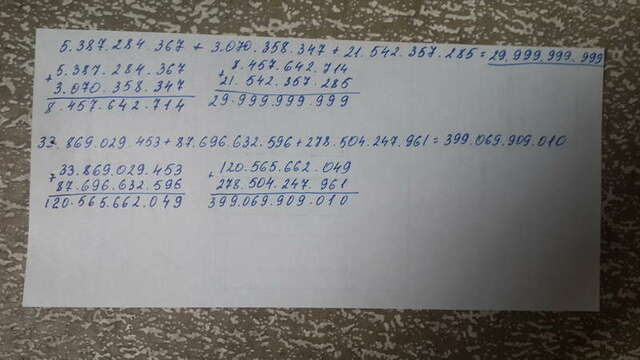 5.387.284.367 + 3.070.358.347 + 21.542.357.285 = 29.999.999.999
+ 5.387.284.367 + 8.457.642.714
3.070.358.347 21.542.357.285
8.457.642.714 29.999.999.999
33.869.029.453 + 87.696.632.596 + 278.504.247.961 = 399.069.909.010
+ 33.869.029.453 + 120.565.662.049
87.696.632.596 278.504.247.961
120.565.662.049 399.069.909.010